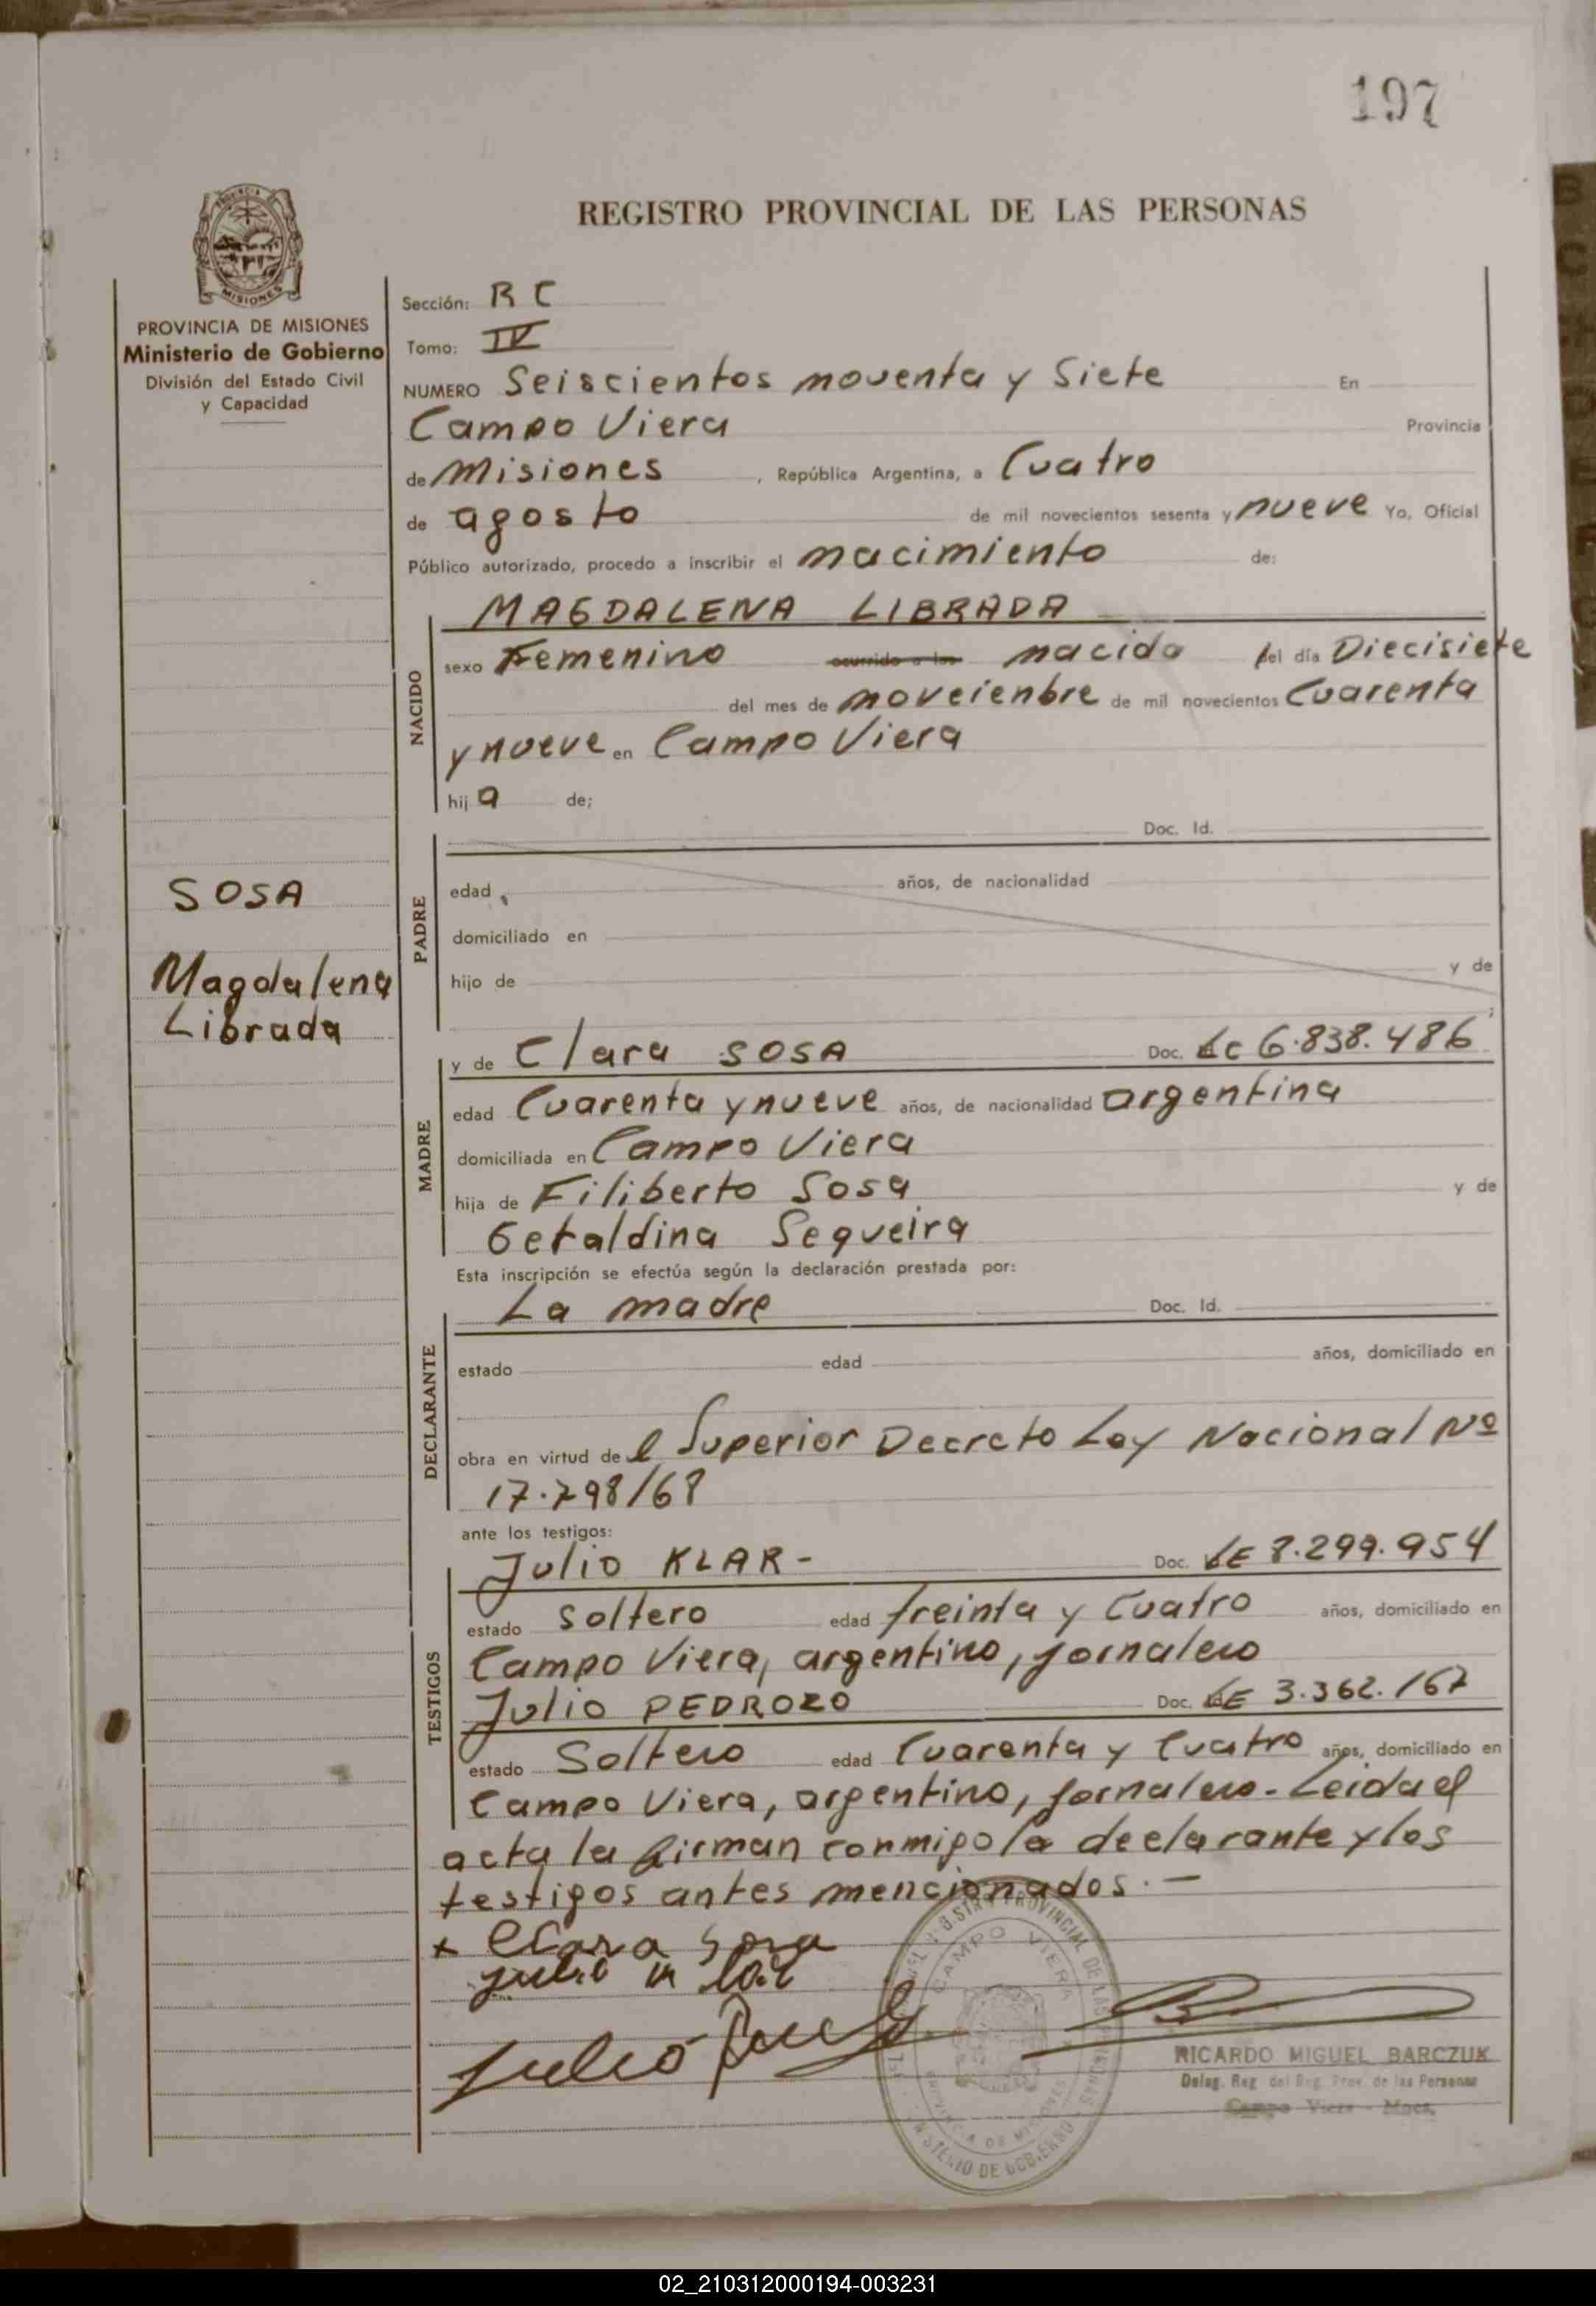 197
REGISTRO PROVINCIAL DE LAS PERSONAS
PROVINCIA DE MISIONES
Ministerio de Gobierno
División del Estado Civil
y Capacidad
Sección: RC
Tomo: IV
NUMERO Seiscientos noventa y Siete En
Campo Viera Provincia
de Misiones , República Argentina, a Cuatro
de agosto de mil novecientos sesenta y nueve Yo, Oficial
Público autorizado, procedo a inscribir el nacimiento de:
MAGDALENA LIBRADA
NACIDO
sexo Femenino ocurrido a las nacida del día Diecisiete
del mes de noveienbre de mil novecientos Cuarenta
y nueve en Campo Viera
hij a de;
SOSA
Magdalena
Librada
PADRE
Doc. Id.
edad años, de nacionalidad
domiciliado en
hijo de y de
MADRE
y de Clara SOSA Doc. LC 6.838.486
edad Cuarenta y nueve años, de nacionalidad argentina
domiciliada en Campo Viera
hija de Filiberto Sosa y de
Getaldina Sequeira
Esta inscripción se efectúa según la declaración prestada por:
DECLARANTE
La madre Doc. Id.
estado edad años, domiciliado en
obra en virtud de l Superior Decreto Ley Nacional Nº
17.798/68
ante los testigos:
TESTIGOS
Julio KLAR- Doc. LE 8.299.954
estado Soltero edad treinta y Cuatro años, domiciliado en
Campo Viera, argentino, jornalero
Julio PEDROZO Doc. LE 3.362.167
estado Soltero edad Cuarenta y Cuatro años, domiciliado en
Campo Viera, argentino, jornalero. Leida el
acta la firman conmigo la declarante y los
testigos antes mencionados. —
x Clara Sosa
Julio
Julio
CAMPO VIERA
PROVINCIAL DE LAS PERSONAS
MINISTERIO DE GOBIERNO
PROVINCIA DE MISIONES
RICARDO MIGUEL BARCZUK
Deleg. Reg. del Reg. Prov. de las Personas
Campo Viera - Mnes.
02_210312000194-003231